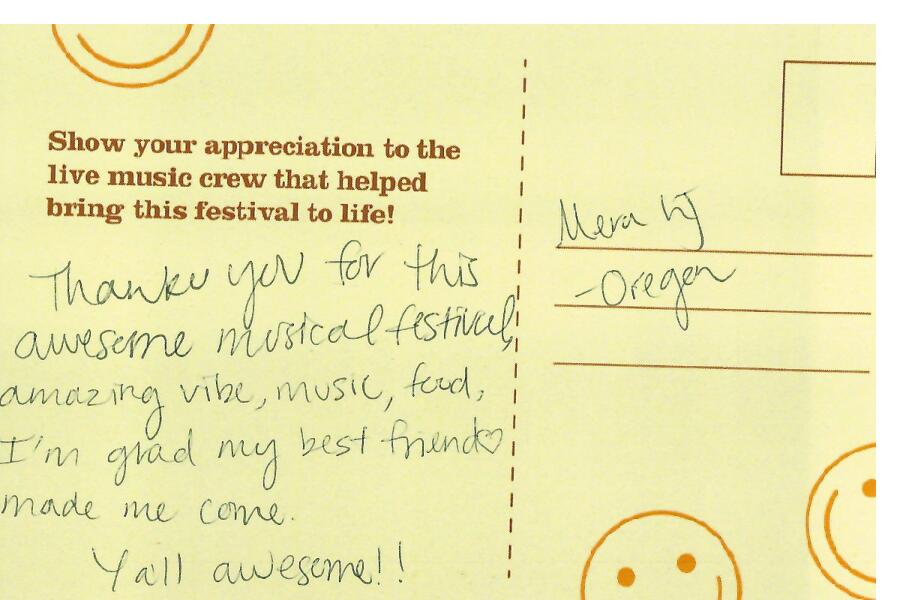 Show your appreciation to the
live music crew that helped
bring this festival to life!
Thanku you for this
awesome musical festival,
amazing vibe, music, food,
I'm grad my best friend♡
made me come.
Y'all awesome!!
Mera
-Oregon